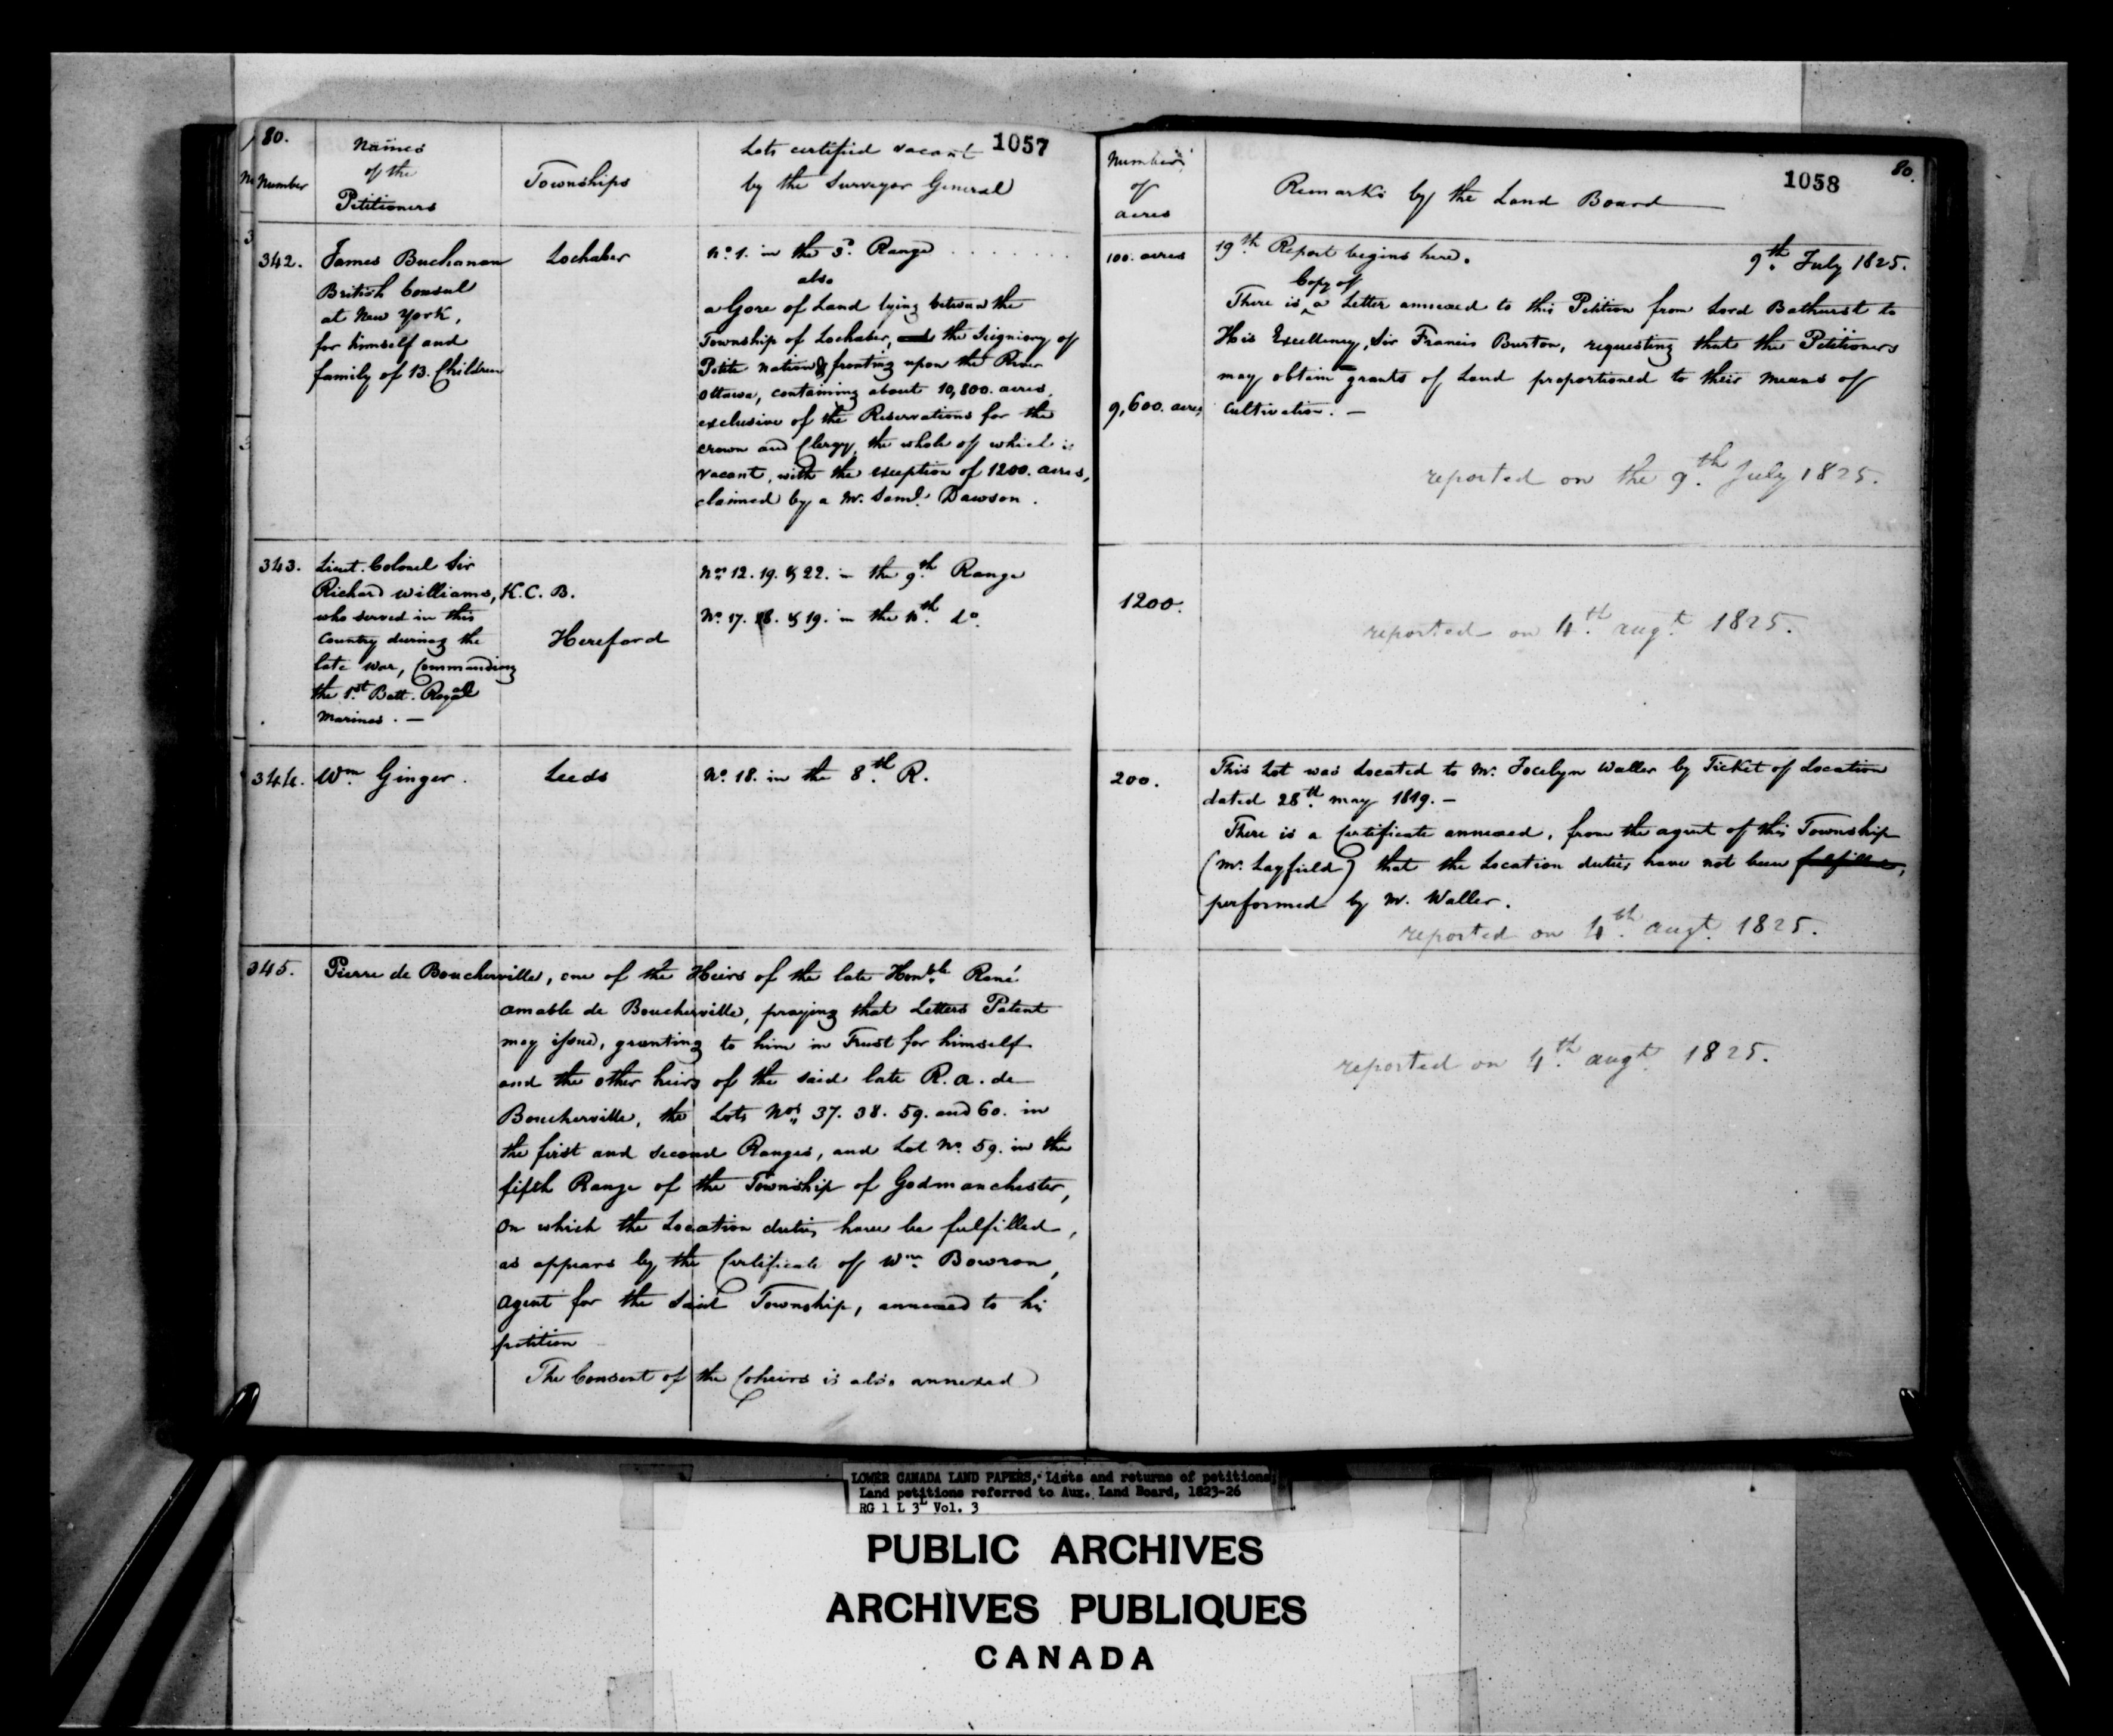 80.
1057
Number
Names
of the
Petitioners
Townships
Lots certified vacant
by the Surveyor General
342.
James Buchanan
British Consul
at New York,
for himself and
family of 13. Children
Lochaber
No. 1. in the Range
also
a Gore of Land lying between the
Township of Lochaber, the Seigniory of
Petite nation & fronting upon the River
Ottawa, containing about 10,800. acres,
exclusive of the Reservations for the
Crown and Clergy, the whole of which is
vacant, with the exception of 1200. acres,
claimed by a Mr. Saml. Dawson.
343.
Lieut. Colonel Sir
Richard Williams, K.C.B.
who served in this
Country during the
late war, Commanding
the 1st Batt. Royal
Marines. —
Hereford
Nos. 12. 19. & 22. in the 9th Range
No. 17. 18. & 19. in the do.
344.
Wm. Ginger.
Leeds
No. 18. in the 8th R.
345.
Pierre de Boucherville, one of the Heirs of the late Honble. René
Amable de Boucherville, praying that Letters Patent
may issue, granting to him in Trust for himself
and the other heirs of the said late R. A. de
Boucherville, the Lots Nos. 37. 38. 59. and 60. in
the first and second Ranges, and Lot No. 59. in the
fifth Range of the Township of Godmanchester,
on which the Location duties have be fulfilled,
as appears by the Certificate of Wm. Bowron,
Agent for the said Township, annexed to his
petition
The Consent of the Coheirs is also annexed
Number
of
acres
Remarks by the Land Board
1058
80.
100. acres
19th Report begins here.
9th July 1825.
Copy of
There is a Letter annexed to this Petition from Lord Bathurst to
His Excellency, Sir Francis Burton, requesting that the Petitioners
may obtain grants of Land proportioned to their means of
9,600. acres
Cultivation. —
reported on the 9th July 1825.
1200.
reported on 4th augt. 1825.
200.
This Lot was Located to Mr. Jocelyn Waller by Ticket of Location
dated 28th may 1819. —
There is a Certificate annexed, from the agent of this Township
(Mr. Layfield) that the Location duties have not been fulfilled,
performed by Mr. Waller.
reported on 4th augt. 1825.
reported on 4th augt. 1825.
LOWER CANADA LAND PAPERS, Lists and returns of petitions;
Land petitions referred to Aux. Land Board, 1823-26
RG 1 L 3L Vol. 3
PUBLIC ARCHIVES
ARCHIVES PUBLIQUES
CANADA